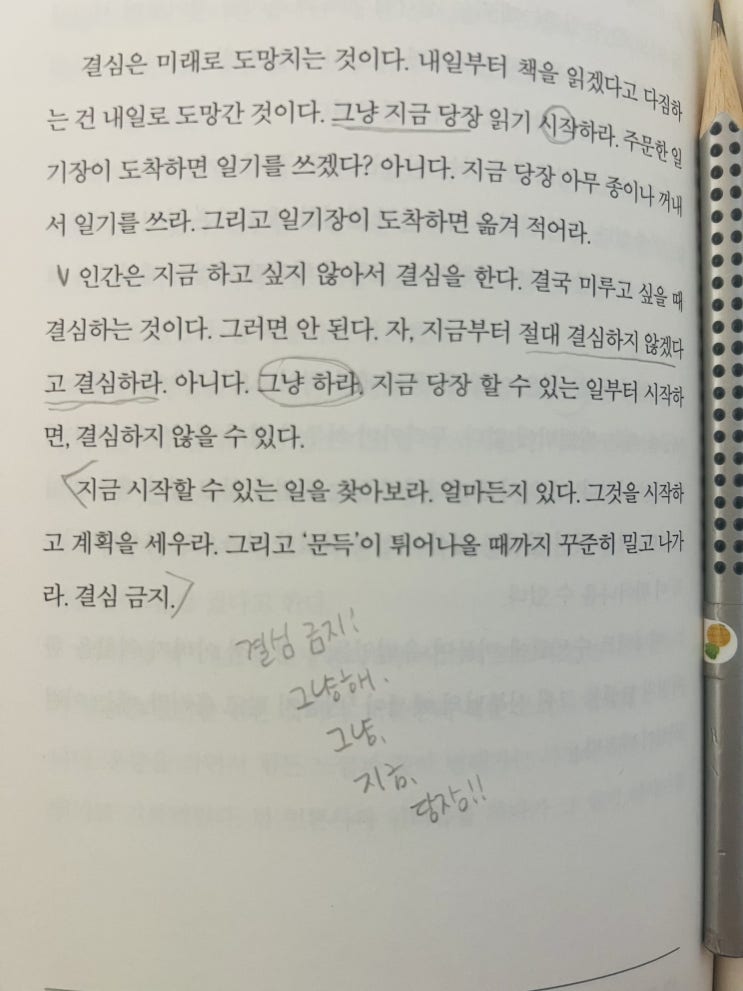 결심은 미래로 도망치는 것이다. 내일부터 책을 읽겠다고 다짐하
는 건 내일로 도망간 것이다. 그냥 지금 당장 읽기 시작하라. 주문한 일
기장이 도착하면 일기를 쓰겠다? 아니다. 지금 당장 아무 종이나 꺼내
서 일기를 쓰라. 그리고 일기장이 도착하면 옮겨 적어라.
인간은 지금 하고 싶지 않아서 결심을 한다. 결국 미루고 싶을 때
결심하는 것이다. 그러면 안 된다. 자, 지금부터 절대 결심하지 않겠다
고 결심하라. 아니다. 그냥 하라. 지금 당장 할 수 있는 일부터 시작하
면, 결심하지 않을 수 있다.
지금 시작할 수 있는 일을 찾아보라. 얼마든지 있다. 그것을 시작하
고 계획을 세우라. 그리고 ‘문득’이 튀어나올 때까지 꾸준히 밀고 나가
라. 결심 금지.
결심 금지!
그냥해.
그냥,
지금,
당장!!